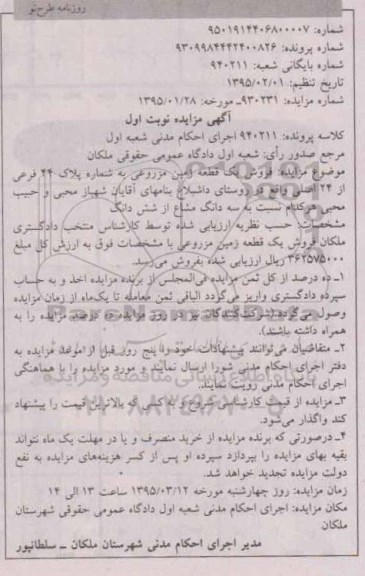 روزنامه طرح نو
شماره: ۹۵۰۱۹۱۴۴۰۶۸۰۰۰۰۷
شماره پرونده: ۹۳۰۹۹۸۴۴۴۲۴۰۰۸۲۶
شماره بایگانی شعبه: ۹۴۰۲۱۱
تاریخ تنظیم: ۱۳۹۵/۰۲/۰۱
شماره مزایده: ۹۳۰۲۳۱ــ مورخه: ۱۳۹۵/۰۱/۲۸
آگهی مزایده نوبت اول
کلاسه پرونده: ۹۴۰۲۱۱ اجرای احکام مدنی شعبه اول
مرجع صدور رأی: شعبه اول دادگاه عمومی حقوقی ملکان
موضوع مزایده: فروش یک قطعه زمین مزروعی به شماره پلاک ۲۴ فرعی
از ۲۴ اصلی واقع در روستای داشبلاغ بنامهای آقایان شهباز محبی و حبیب
محبی هرکدام نسبت به سه دانگ مشاع از شش دانگ
مشخصات: حسب نظریه ارزیابی شده توسط کارشناس منتخب دادگستری
ملکان فروش یک قطعه زمین مزروعی با مشخصات فوق به ارزش کل مبلغ
۳۶۲۵۷۵۰۰۰ ریال ارزیابی شده بفروش می‌رسد.
۱ــ ده درصد از کل ثمن مزایده فی‌المجلس از برنده مزایده اخذ و به حساب
سپرده دادگستری واریز می‌گردد الباقی ثمن معامله تا یک‌ماه از زمان مزایده
وصول می‌گردد (شرکت‌کنندگان نیز در روز مزایده ده درصد مزایده را به
همراه داشته باشند).
۲ــ متقاضیان می‌توانند پیشنهادات خود را پنج روز قبل از موعد مزایده به
دفتر اجرای احکام مدنی شورا ارسال نمایند و مورد مزایده را با هماهنگی
اجرای احکام مدنی رویت نمایند.
۳ــ مزایده از قیمت کارشناسی شروع و به کسی که بالاترین قیمت را پیشنهاد
کند واگذار می‌شود.
۴ــ درصورتی که برنده مزایده از خرید منصرف و یا در مهلت یک ماه نتواند
بقیه بهای مزایده را بپردازد سپرده او پس از کسر هزینه‌های مزایده به نفع
دولت مزایده تجدید خواهد شد.
زمان مزایده: روز چهارشنبه مورخه ۱۳۹۵/۰۳/۱۲ ساعت ۱۳ الی ۱۴
مکان مزایده: اجرای احکام مدنی شعبه اول دادگاه عمومی حقوقی شهرستان
ملکان
مدیر اجرای احکام مدنی شهرستان ملکان ــ سلطانپور